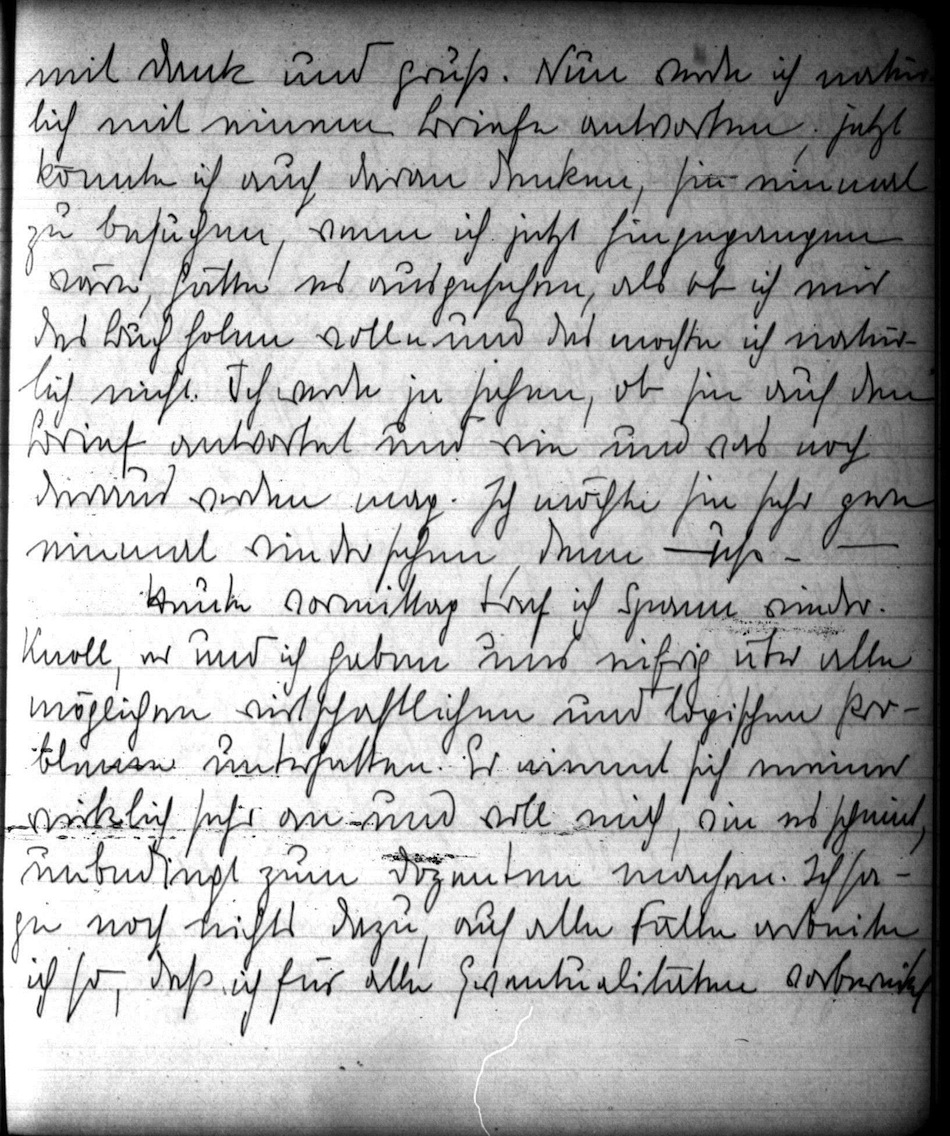 mit Dank und Gruß. Nun werde ich natür-
lich mit einem Briefe antworten, jetzt
könnte ich auch daran denken, sie einmal
zu besuchen, wenn ich jetzt hingegangen
wäre, hätte es ausgesehen, als ob ich mir
das Buch holen wolle und das mochte ich natür-
lich nicht. Ich werde ja sehen, ob sie auf den
Brief antwortet und wie und was noch
daraus werden mag. Ich möchte sie sehr gern
einmal wiedersehen, denn — —
Heute vormittag traf ich Spann wieder.
Knoll, er und ich haben uns eifrig über alle
möglichen wirtschaftlichen und logischen Pro-
bleme unterhalten. Er nimmt sich meiner
wirklich sehr an und will mich, wie es scheint,
unbedingt zum Dozenten machen. Ich sa-
ge noch nichts dazu, auf alle Fälle arbeite
ich so, daß ich für alle Eventualitäten vorbereitet